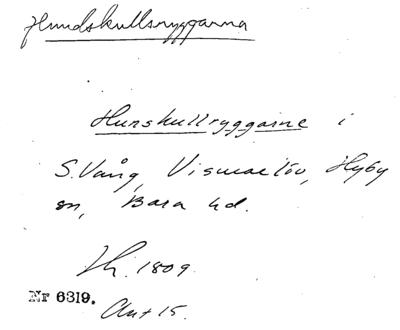 Hundskullsryggarna
Hunskullryggarne i
S. Vång, Vismarlöv, Hyby
sn, Bara hd.
Th. 1809.
Nr 6319.
Akt 15.